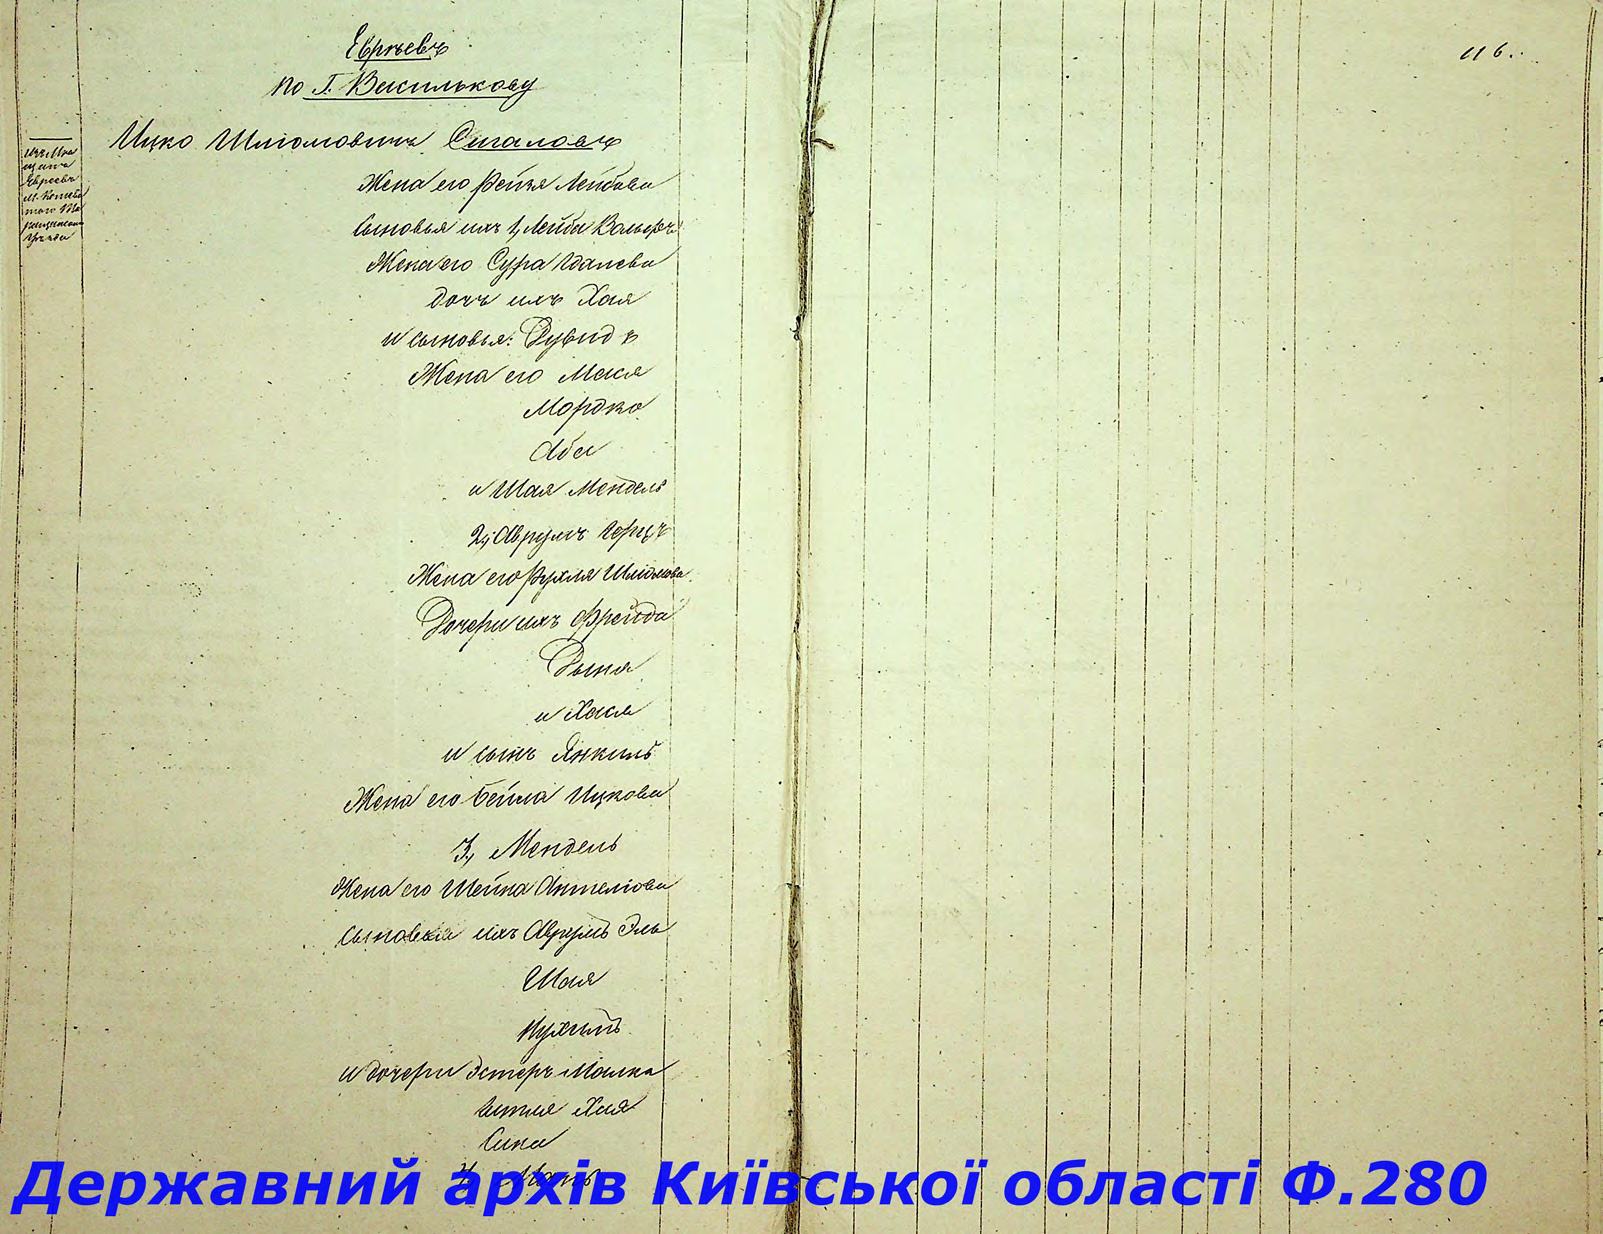 Евреевъ
по г. Василькову
116.
Ицко Шліомовичъ Сигаловъ
изъ Мѣ
щанъ
Евреевъ
м.
того
Уѣзда
Жена его Рейзя Лейбова
Сыновья ихъ 1, Лейба Вольфъ
Жена его Сура
дочь ихъ Хая
и сыновья: Дувидъ
Жена его Мася
Мордко
Аба
и Шая Мендель
2, Аврумъ Герцъ
Жена его Рухля Шліомова
Дочери ихъ Фрейда
Дыня
и Хася
и сынъ Янкель
Жена его Бейла Ицкова
3, Мендель
Жена его Шейна
Сыновья ихъ Аврумъ Эль
Шая
Нухимъ
и дочери Эстеръ Малка
Хая
Сима
4,
Державний архів Київської області Ф.280